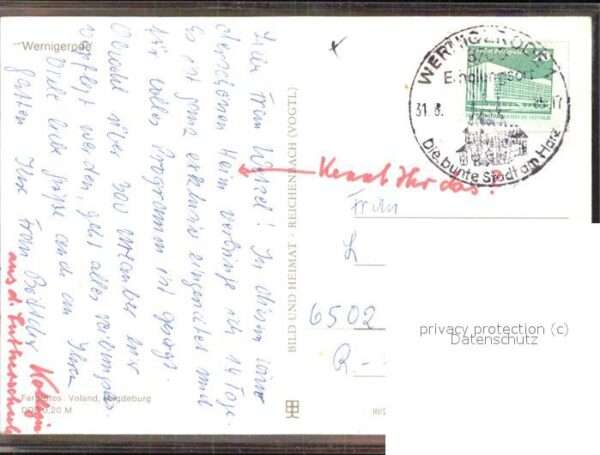 Wernigerode
Liebe Frau Wenzel! In diesem
wunderschönen Heim verbringe ich 14 Tage.
Es ist ganz exklusiv eingerichtet und
für alles Programm ist gesorgt.
Obwohl über 300 Urlauber hier
verpflegt werden, geht alles reibungslos.
Viele liebe Grüße auch an Ihren
Gatten Ihre Frau
Kollegin
aus d. Lutherschule
Kennt Ihr das?
Farbfotos: Voland, Magdeburg
0,20 M
BILD UND HEIMAT · REICHENBACH (VOGTL)
WERNIGERODE 1
37
Erholungsort
31.8.
Die bunte Stadt am Harz
Frau
6502
privacy protection (c)
Datenschutz